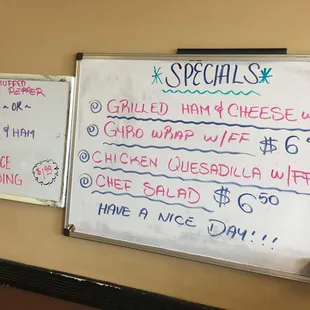 STUFFED
PEPPER
~ OR ~
& HAM
$1.99
*SPECIALS*
GRILLED HAM & CHEESE W
GYRO WRAP W/FF $6
CHICKEN QUESADILLA W/FF
CHEF SALAD $6.50
HAVE A NICE DAY!!!